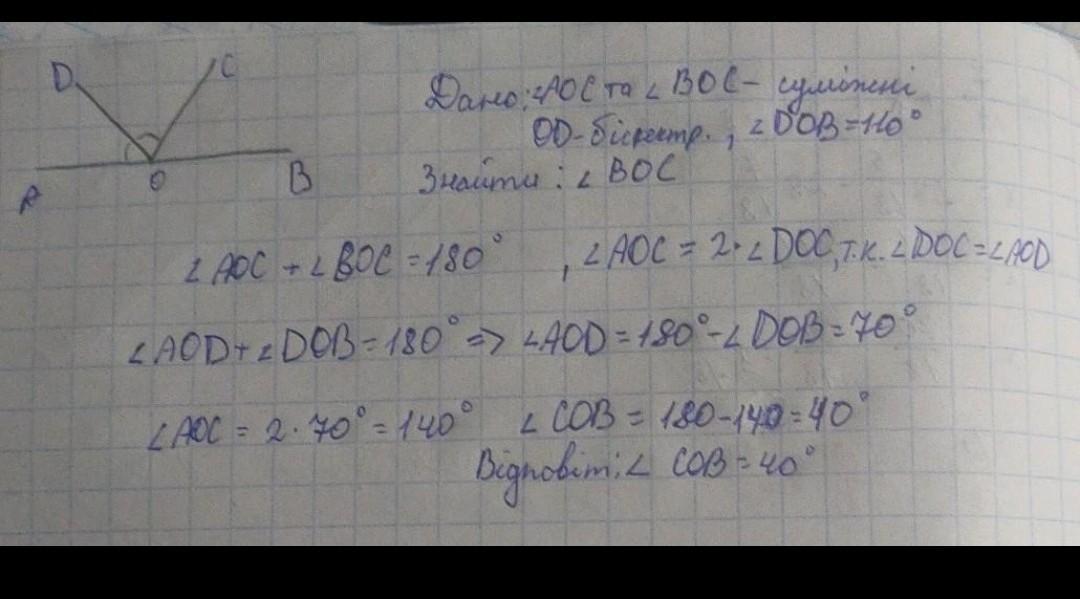 D C
Дано: ∠AOC та ∠BOC - суміжні
OD-бісектр., ∠DOB=110°
A O B
Знайти: ∠BOC
∠AOC + ∠BOC = 180° , ∠AOC = 2·∠DOC, т.к. ∠DOC=∠AOD
∠AOD+∠DOB=180° => ∠AOD=180°-∠DOB=70°
∠AOC = 2·70°=140° ∠COB = 180-140=40°
Відповіт: ∠ COB=40°